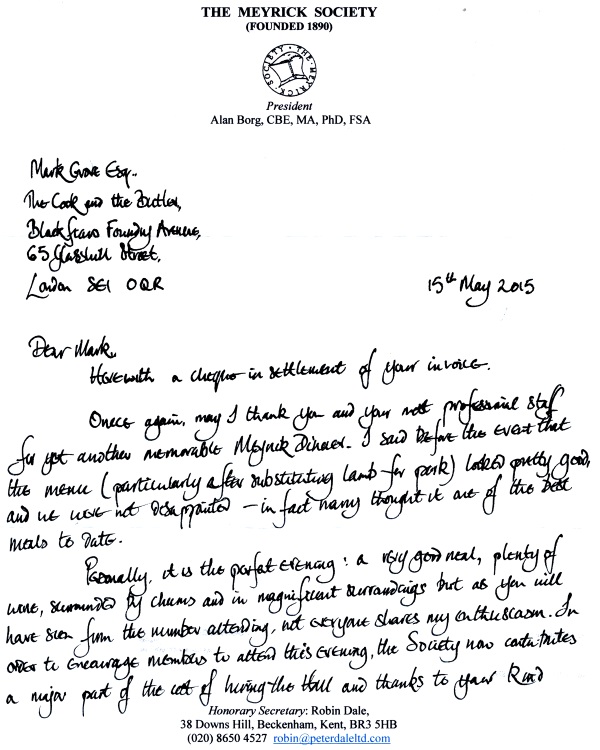 THE MEYRICK SOCIETY
(FOUNDED 1890)
THE · MEYRICK · SOCIETY ·
President
Alan Borg, CBE, MA, PhD, FSA
Mark Grove Esq.,
The Cook and the Butler,
Blackfriars Foundry Avenue,
65 Glasshill Street,
London SE1 0QR
15th May 2015
Dear Mark,
Herewith a cheque in settlement of your invoice.
Once again, may I thank you and your professional staff
for yet another memorable Meyrick Dinner. I said before the event that
the menu (particularly after substituting lamb for pork) looked pretty good,
and we were not disappointed – in fact many thought it one of the best
meals to date.
Personally, it is the perfect evening: a very good meal, plenty of
wine, surrounded by chums and in magnificent surroundings but as you will
have seen from the number attending, not everyone shares my enthusiasm. In
order to encourage members to attend this evening, the Society now contributes
a major part of the cost of hiring the Hall and thanks to your kind
Honorary Secretary: Robin Dale,
38 Downs Hill, Beckenham, Kent, BR3 5HB
(020) 8650 4527 robin@peterdaleltd.com